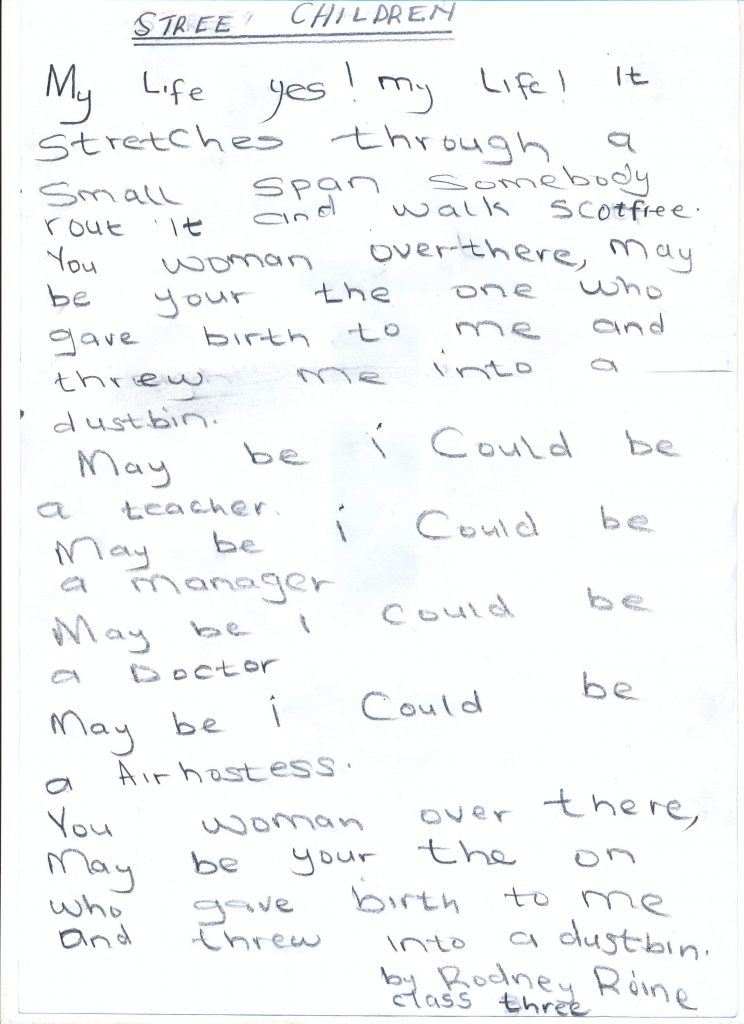 STREE CHILDREN
My Life yes! my Life! It
stretches through a
small span somebody
rout it and walk scotfree.
You woman overthere, may
be your the one who
gave birth to me and
threw me into a
dustbin.
May be i Could be
a teacher.
May be i Could be
a manager
May be i could be
a Doctor
May be i Could be
a Airhostess.
You woman over there,
May be your the on
who gave birth to me
and threw into a dustbin.
by Rodney Roine
class three